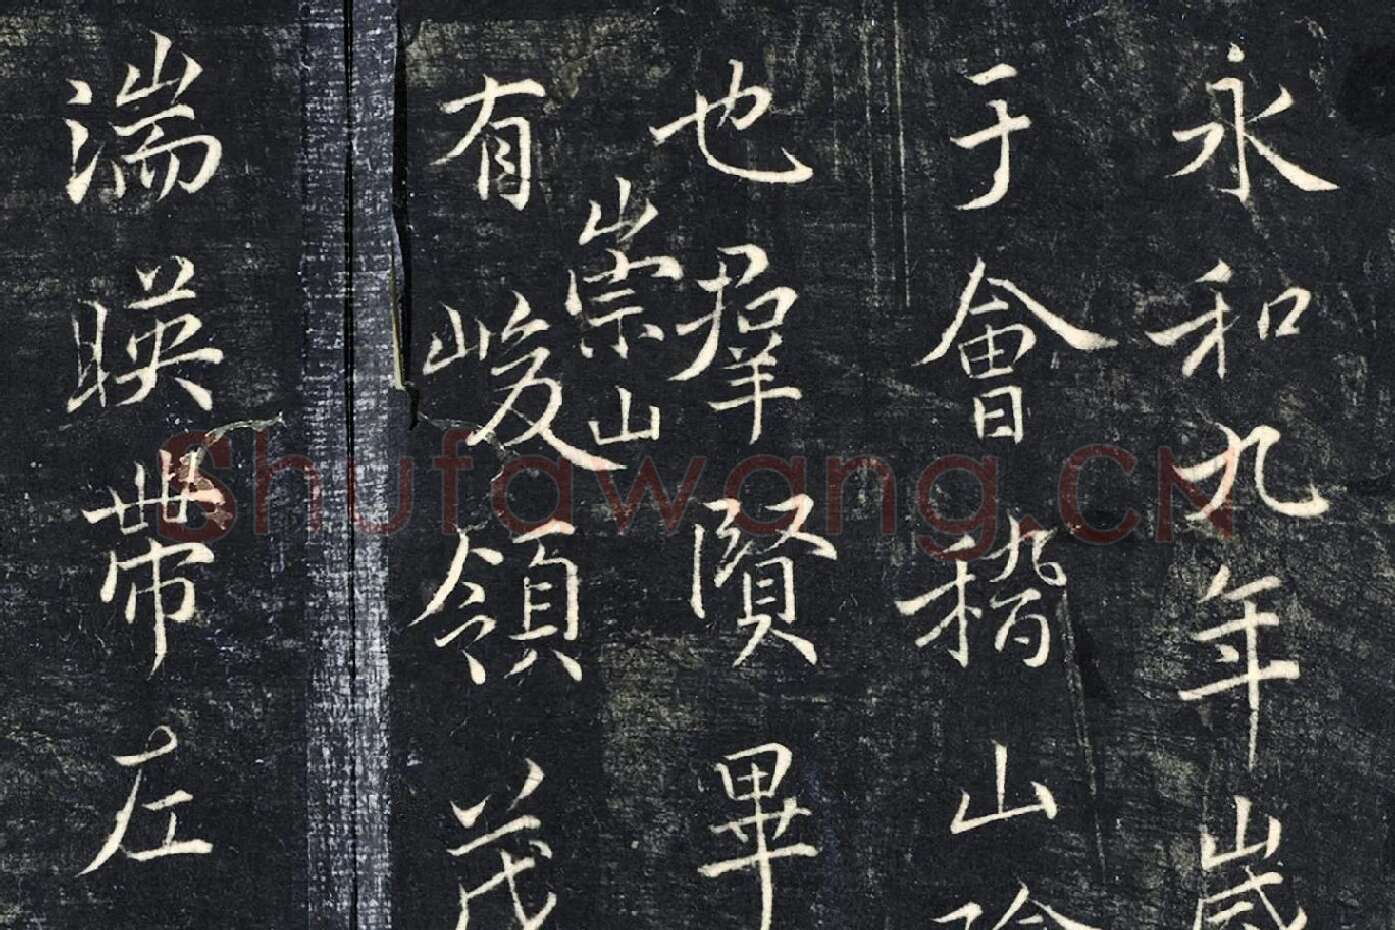 永和九年歲
于會稽山陰
也羣賢畢
崇山
有峻領茂
湍暎帶左
Shufawang.CN